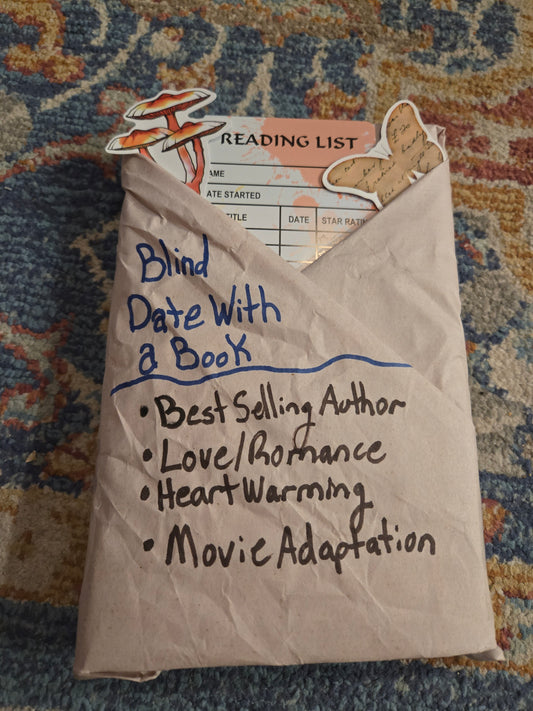 READING LIST
AME
ATE STARTED
TITLE DATE STAR RATIN
Blind
Date With
a Book
• Best Selling Author
• Love/Romance
• Heart Warming
• Movie Adaptation